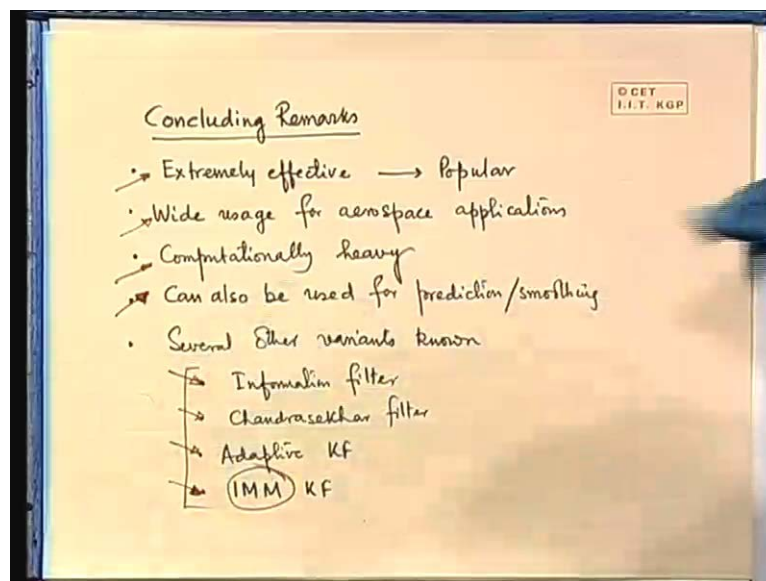 © CET
I.I.T. KGP
Concluding Remarks
• Extremely effective → Popular
• Wide usage for aerospace applications
• Computationally heavy
• Can also be used for prediction/smoothing
• Several other variants known
Information filter
Chandrasekhar filter
Adaptive KF
IMM KF